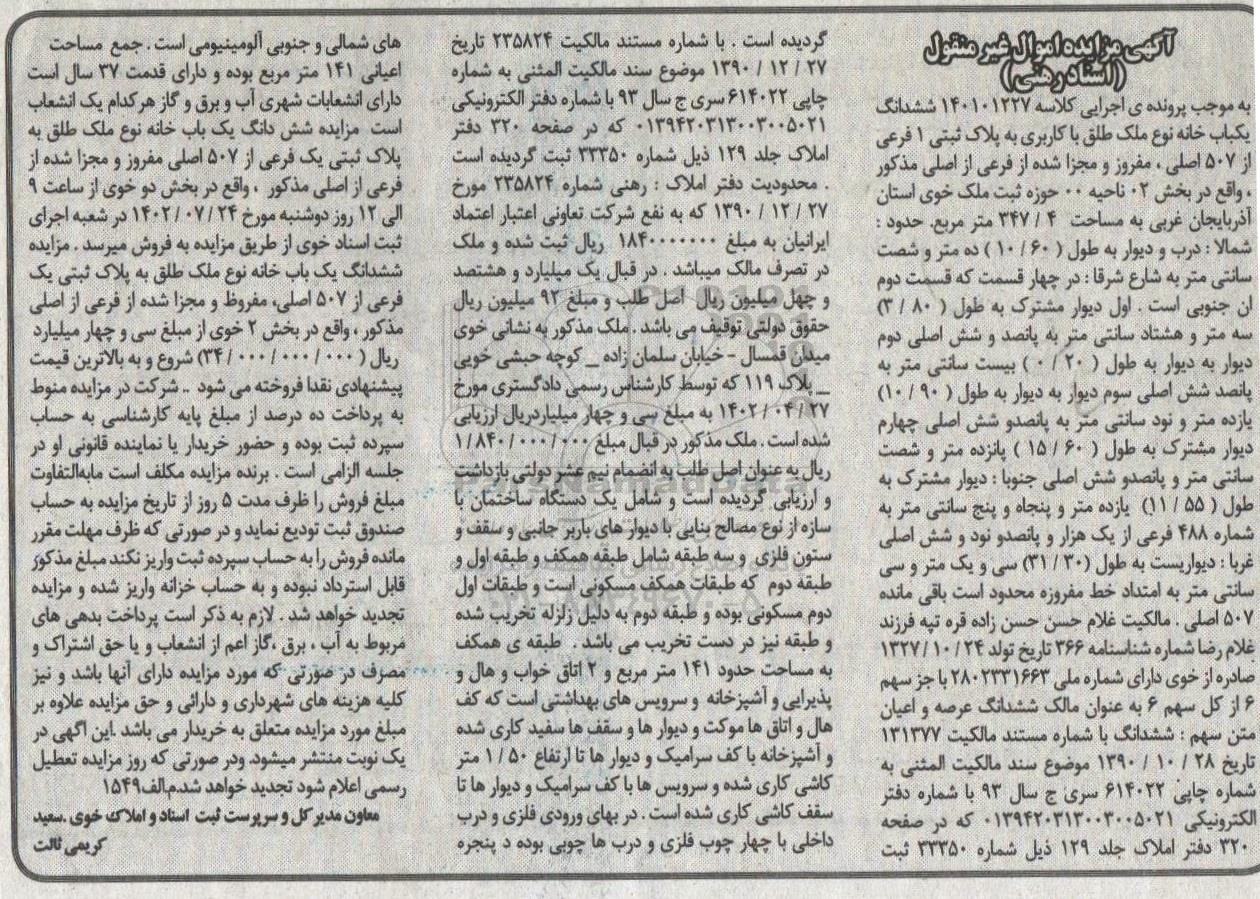 آگهی مزایده اموال غیر منقول
(اسناد رهنی)
به موجب پرونده ی اجرایی کلاسه ۱۴۰۱۰۱۲۲۷ ششدانگ
یکباب خانه نوع ملک طلق با کاربری به پلاک ثبتی ۱ فرعی
از ۵۰۷ اصلی ، مفروز و مجزا شده از فرعی از اصلی مذکور
، واقع در بخش ۰۲ ناحیه ۰۰ حوزه ثبت ملک خوی استان
آذربایجان غربی به مساحت ۳۴۷/۴ متر مربع. حدود :
شمالا : درب و دیوار به طول ( ۱۰/۶۰ ) ده متر و شصت
سانتی متر به شارع شرقا : در چهار قسمت که قسمت دوم
ان جنوبی است . اول دیوار مشترک به طول ( ۳/۸۰ )
سه متر و هشتاد سانتی متر به پانصد و شش اصلی دوم
دیوار به دیوار به طول ( ۰/۲۰ ) بیست سانتی متر به
پانصد شش اصلی سوم دیوار به دیوار به طول ( ۱۰/۹۰ )
یازده متر و نود سانتی متر به پانصدو شش اصلی چهارم
دیوار مشترک به طول ( ۱۵/۶۰ ) پانزده متر و شصت
سانتی متر و پانصدو شش اصلی جنوبا : دیوار مشترک به
طول ( ۱۱/۵۵ ) یازده متر و پنجاه و پنج سانتی متر به
شماره ۴۸۸ فرعی از یک هزار و پانصدو نود و شش اصلی
غربا : دیواریست به طول (۳۱/۳۰) سی و یک متر و سی
سانتی متر به امتداد خط مفروزه محدود است باقی مانده
۵۰۷ اصلی . مالکیت غلام حسن حسن زاده قره تپه فرزند
غلام رضا شماره شناسنامه ۳۶۶ تاریخ تولد ۱۳۲۷/۱۰/۲۴
صادره از خوی دارای شماره ملی ۲۸۰۲۳۳۱۶۶۳ با جز سهم
۶ از کل سهم ۶ به عنوان مالک ششدانگ عرصه و اعیان
متن سهم : ششدانگ با شماره مستند مالکیت ۱۳۱۳۷۷
تاریخ ۲۸ / ۱۰ / ۱۳۹۰ موضوع سند مالکیت المثنی به
شماره چاپی ۶۱۴۰۲۲ سری ج سال ۹۳ با شماره دفتر
الکترونیکی ۰۱۳۹۴۲۰۳۱۳۰۰۳۰۰۵۰۲۱ که در صفحه
۳۲۰ دفتر املاک جلد ۱۲۹ ذیل شماره ۳۳۳۵۰ ثبت
گردیده است . با شماره مستند مالکیت ۲۳۵۸۲۴ تاریخ
۲۷ / ۱۲ / ۱۳۹۰ موضوع سند مالکیت المثنی به شماره
چاپی ۶۱۴۰۲۲ سری ج سال ۹۳ با شماره دفتر الکترونیکی
۰۱۳۹۴۲۰۳۱۳۰۰۳۰۰۵۰۲۱ که در صفحه ۳۲۰ دفتر
املاک جلد ۱۲۹ ذیل شماره ۳۳۳۵۰ ثبت گردیده است
. محدودیت دفتر املاک : رهنی شماره ۲۳۵۸۲۴ مورخ
۲۷ / ۱۲ / ۱۳۹۰ که به نفع شرکت تعاونی اعتبار اعتماد
ایرانیان به مبلغ ۱۸۴۰۰۰۰۰۰۰ ریال ثبت شده و ملک
در تصرف مالک میباشد . در قبال یک میلیارد و هشتصد
و چهل میلیون ریال اصل طلب و مبلغ ۹۲ میلیون ریال
حقوق دولتی توقیف می باشد . ملک مذکور به نشانی خوی
میدان قمسال - خیابان سلمان زاده _ کوچه حبشی خویی
_ پلاک ۱۱۹ که توسط کارشناس رسمی دادگستری مورخ
۱۴۰۲/۰۴/۲۷ به مبلغ سی و چهار میلیاردریال ارزیابی
شده است . ملک مذکور در قبال مبلغ ۱/۸۴۰/۰۰۰/۰۰۰
ریال به عنوان اصل طلب به انضمام نیم عشر دولتی بازداشت
و ارزیابی گردیده است و شامل یک دستگاه ساختمان با
سازه از نوع مصالح بنایی با دیوار های باربر جانبی و سقف و
ستون فلزی و سه طبقه شامل طبقه همکف و طبقه اول و
طبقه دوم که طبقات همکف مسکونی است و طبقات اول
دوم مسکونی بوده و طبقه دوم به دلیل زلزله تخریب شده
و طبقه نیز در دست تخریب می باشد . طبقه ی همکف
به مساحت حدود ۱۴۱ متر مربع و ۲ اتاق خواب و هال و
پذیرایی و آشپزخانه و سرویس های بهداشتی است که کف
هال و اتاق ها موکت و دیوار ها و سقف ها سفید کاری شده
و آشپزخانه با کف سرامیک و دیوار ها تا ارتفاع ۱/۵۰ متر
کاشی کاری شده و سرویس ها با کف سرامیک و دیوار ها تا
سقف کاشی کاری شده است . در بهای ورودی فلزی و درب
داخلی با چهار چوب فلزی و درب ها چوبی بوده د پنجره
های شمالی و جنوبی آلومینیومی است . جمع مساحت
اعیانی ۱۴۱ متر مربع بوده و دارای قدمت ۳۷ سال است
دارای انشعابات شهری آب و برق و گاز هرکدام یک انشعاب
است مزایده شش دانگ یک باب خانه نوع ملک طلق به
پلاک ثبتی یک فرعی از ۵۰۷ اصلی مفروز و مجزا شده از
فرعی از اصلی مذکور ، واقع در بخش دو خوی از ساعت ۹
الی ۱۲ روز دوشنبه مورخ ۱۴۰۲/۰۷/۲۴ در شعبه اجرای
ثبت اسناد خوی از طریق مزایده به فروش میرسد . مزایده
ششدانگ یک باب خانه نوع ملک طلق به پلاک ثبتی یک
فرعی از ۵۰۷ اصلی، مفروظ و مجزا شده از فرعی از اصلی
مذکور ، واقع در بخش ۲ خوی از مبلغ سی و چهار میلیارد
ریال ( ۳۴/۰۰۰/۰۰۰/۰۰۰) شروع و به بالاترین قیمت
پیشنهادی نقدا فروخته می شود .. شرکت در مزایده منوط
به پرداخت ده درصد از مبلغ پایه کارشناسی به حساب
سپرده ثبت بوده و حضور خریدار یا نماینده قانونی او در
جلسه الزامی است . برنده مزایده مکلف است مابه‌التفاوت
مبلغ فروش را ظرف مدت ۵ روز از تاریخ مزایده به حساب
صندوق ثبت تودیع نماید و در صورتی که ظرف مهلت مقرر
مانده فروش را به حساب سپرده ثبت واریز نکند مبلغ مذکور
قابل استرداد نبوده و به حساب خزانه واریز شده و مزایده
تجدید خواهد شد . لازم به ذکر است پرداخت بدهی های
مربوط به آب ، برق ،گاز اعم از انشعاب و یا حق اشتراک و
مصرف در صورتی که مورد مزایده دارای آنها باشد و نیز
کلیه هزینه های شهرداری و دارائی و حق مزایده علاوه بر
مبلغ مورد مزایده متعلق به خریدار می باشد .این اگهی در
یک نوبت منتشر میشود ودر صورتی که روز مزایده تعطیل
رسمی اعلام شود تجدید خواهد شد.م.الف۱۵۴۹
معاون مدیر کل و سرپرست ثبت اسناد و املاک خوی .سعید
کریمی ثالت